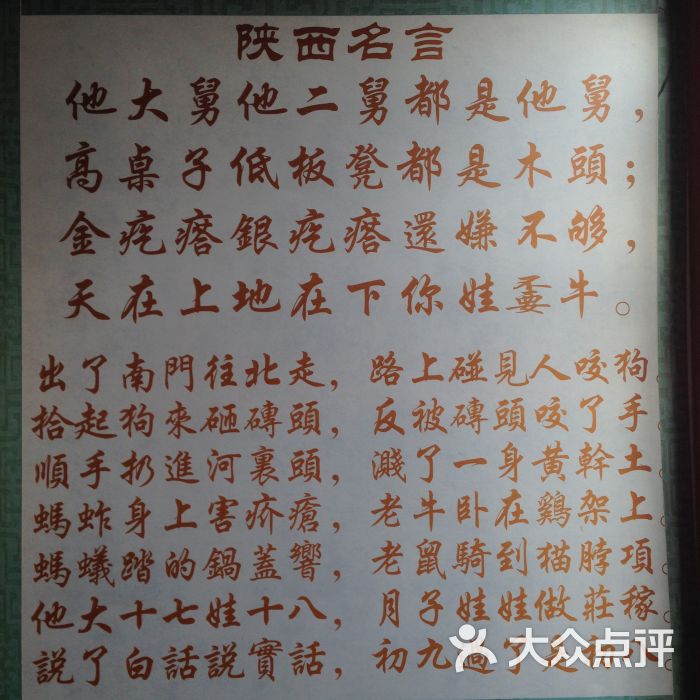 陝西名言
他大舅他二舅都是他舅，
高桌子低板凳都是木頭；
金疙瘩銀疙瘩還嫌不够，
天在上地在下你娃嫑牛。
出了南門往北走， 路上碰見人咬狗。
拾起狗來砸磚頭， 反被磚頭咬了手。
順手扔進河裏頭， 濺了一身黃幹土。
螞蚱身上害疥瘡， 老牛卧在鷄架上。
螞蟻踏的鍋蓋響， 老鼠騎到猫脖項。
他大十七娃十八， 月子娃娃做莊稼。
説了白話説實話， 初九過了是
大众点评